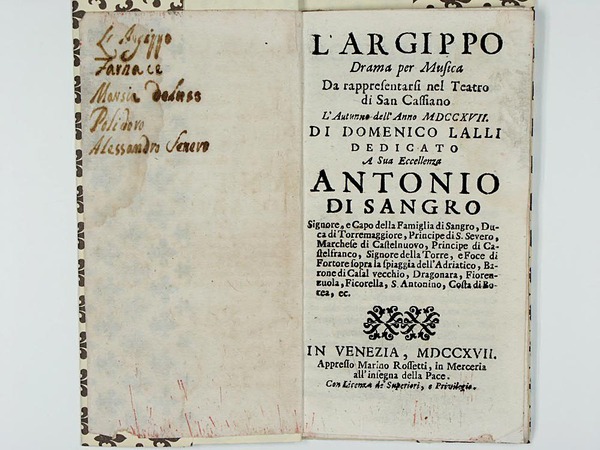 L'Argippo
Farnace
Marsia deluso
Polidoro
Alessandro Severo
L'ARGIPPO
Drama per Musica
Da rappresentarsi nel Teatro
di San Cassiano
L'Autunno dell'Anno MDCCXVII.
DI DOMENICO LALLI
DEDICATO
A Sua Eccellenza
ANTONIO
DI SANGRO
Signore, e Capo della Famiglia di Sangro, Du-
ca di Torremaggiore, Principe di S. Severo,
Marchese di Castelnuovo, Principe di Ca-
stelfranco, Signore della Torre, e Foce di
Fortore sopra la spiaggia dell'Adriatico, Ba-
rone di Casal vecchio, Dragonara, Fioren-
zuola, Ficorella, S. Antonino, Costa di Bo-
rea, ec.
IN VENEZIA, MDCCXVII.
Appresso Marino Rossetti, in Merceria
all'insegna della Pace.
Con Licenza de' Superiori, e Privilegio.